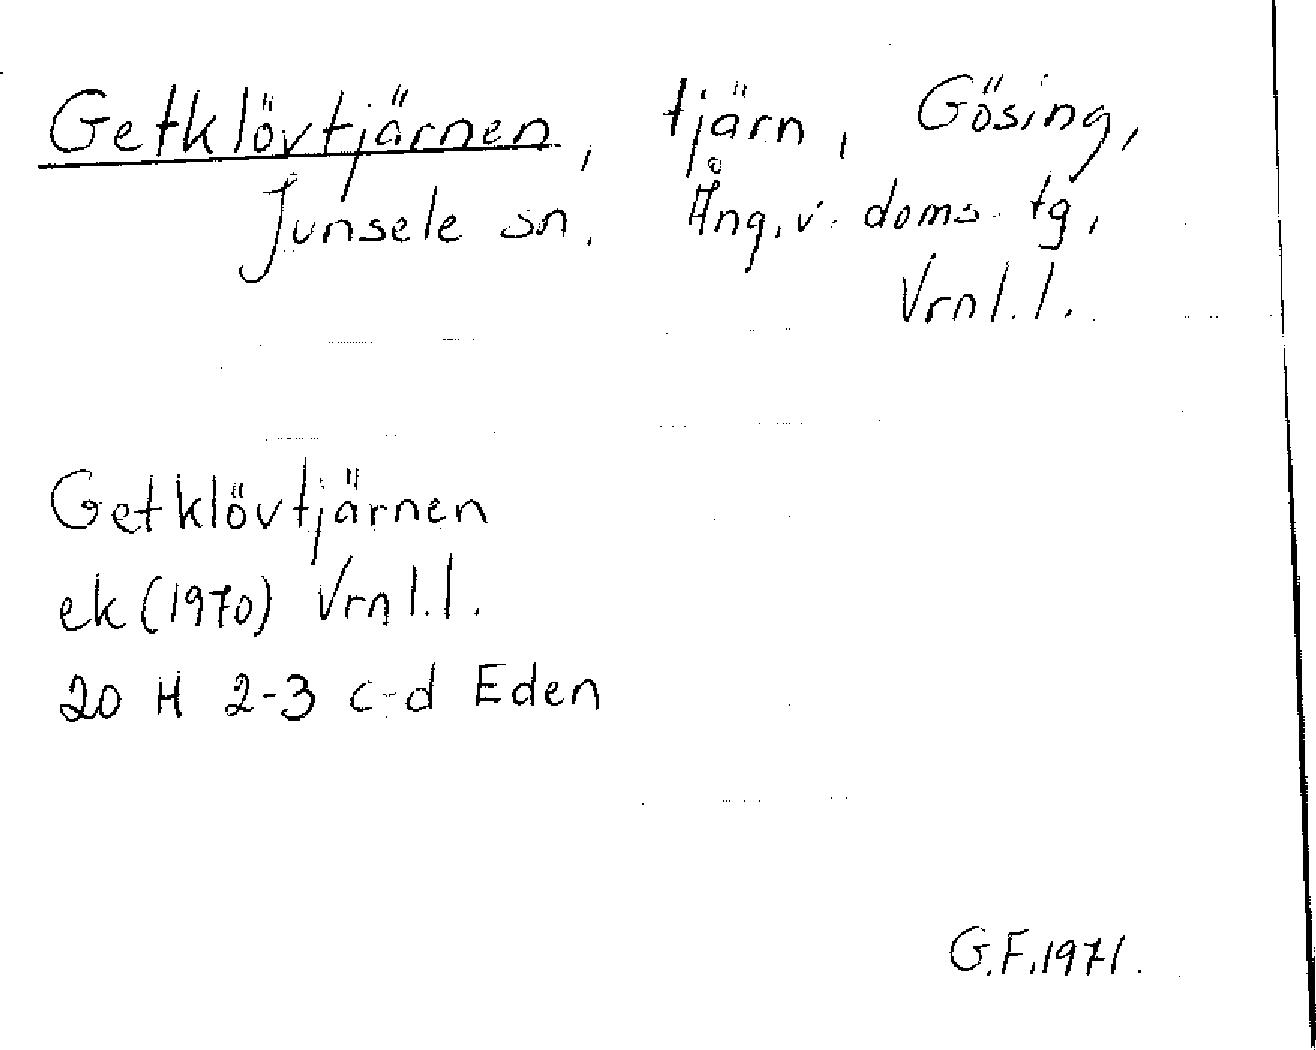 Getklövtjärnen, tjärn, Gösing,
Junsele sn. Ång. v. doms. tg,
Vrnl. l.
Getklövtjärnen
ek (1970) Vrnl. l.
20 H 2-3 c-d Eden
G.F. 1971.